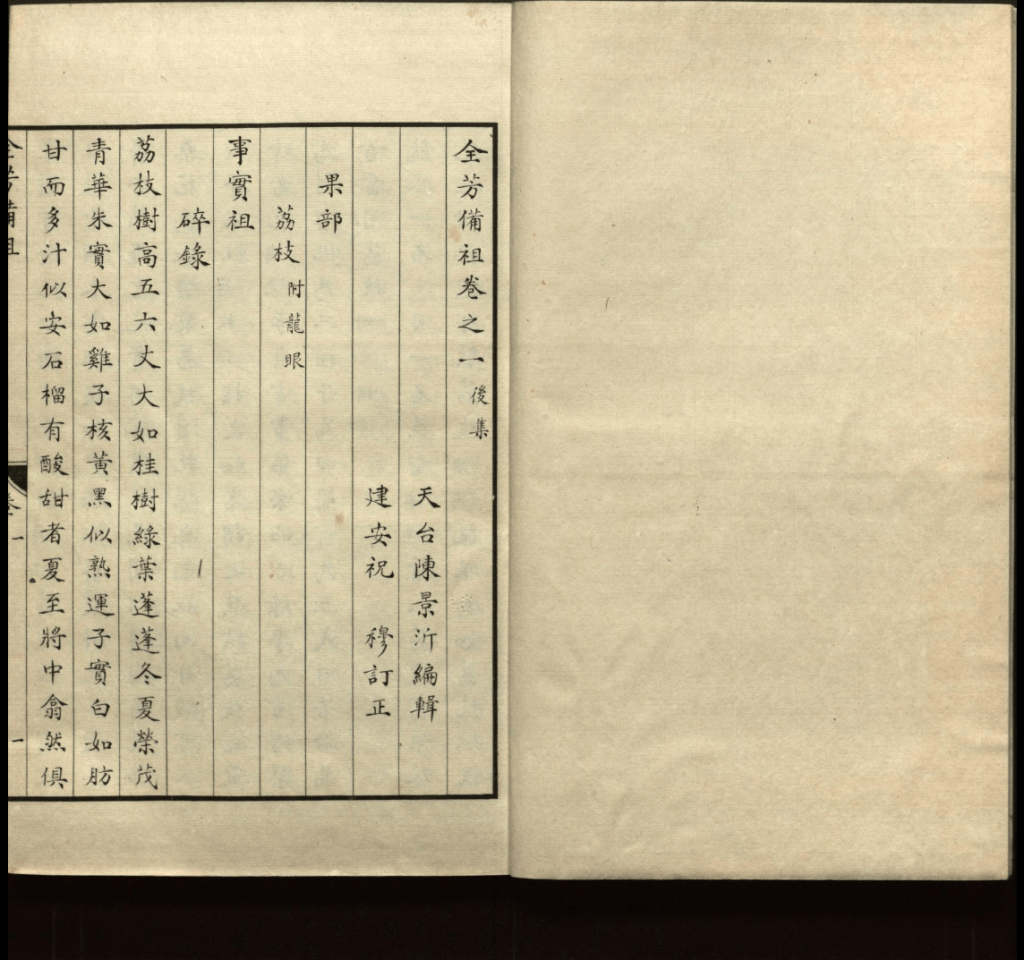 全芳備祖卷之一 後集
天台陳景沂編輯
建安祝 穆訂正
果部
荔枝 附龍眼
事實祖
碎錄
荔枝樹高五六丈大如桂樹綠葉蓬蓬冬夏榮茂
青華朱實大如雞子核黃黑似熟運子實白如肪
甘而多汁似安石榴有酸甜者夏至將中翕然俱
全芳備祖 卷一 一